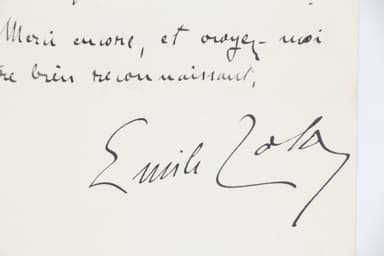 Merci encore, et croyez-moi
tre bien reconnaissant,
Emile Zola